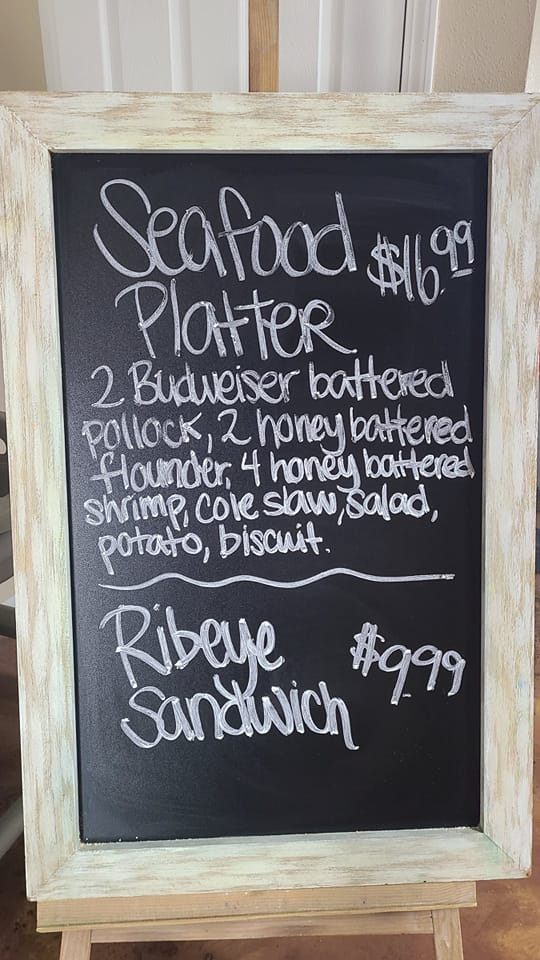 Seafood $16.99
Platter
2 Budweiser battered
pollock, 2 honey battered
flounder, 4 honey battered
shrimp, cole slaw, salad,
potato, biscuit.
Ribeye $9.99
Sandwich